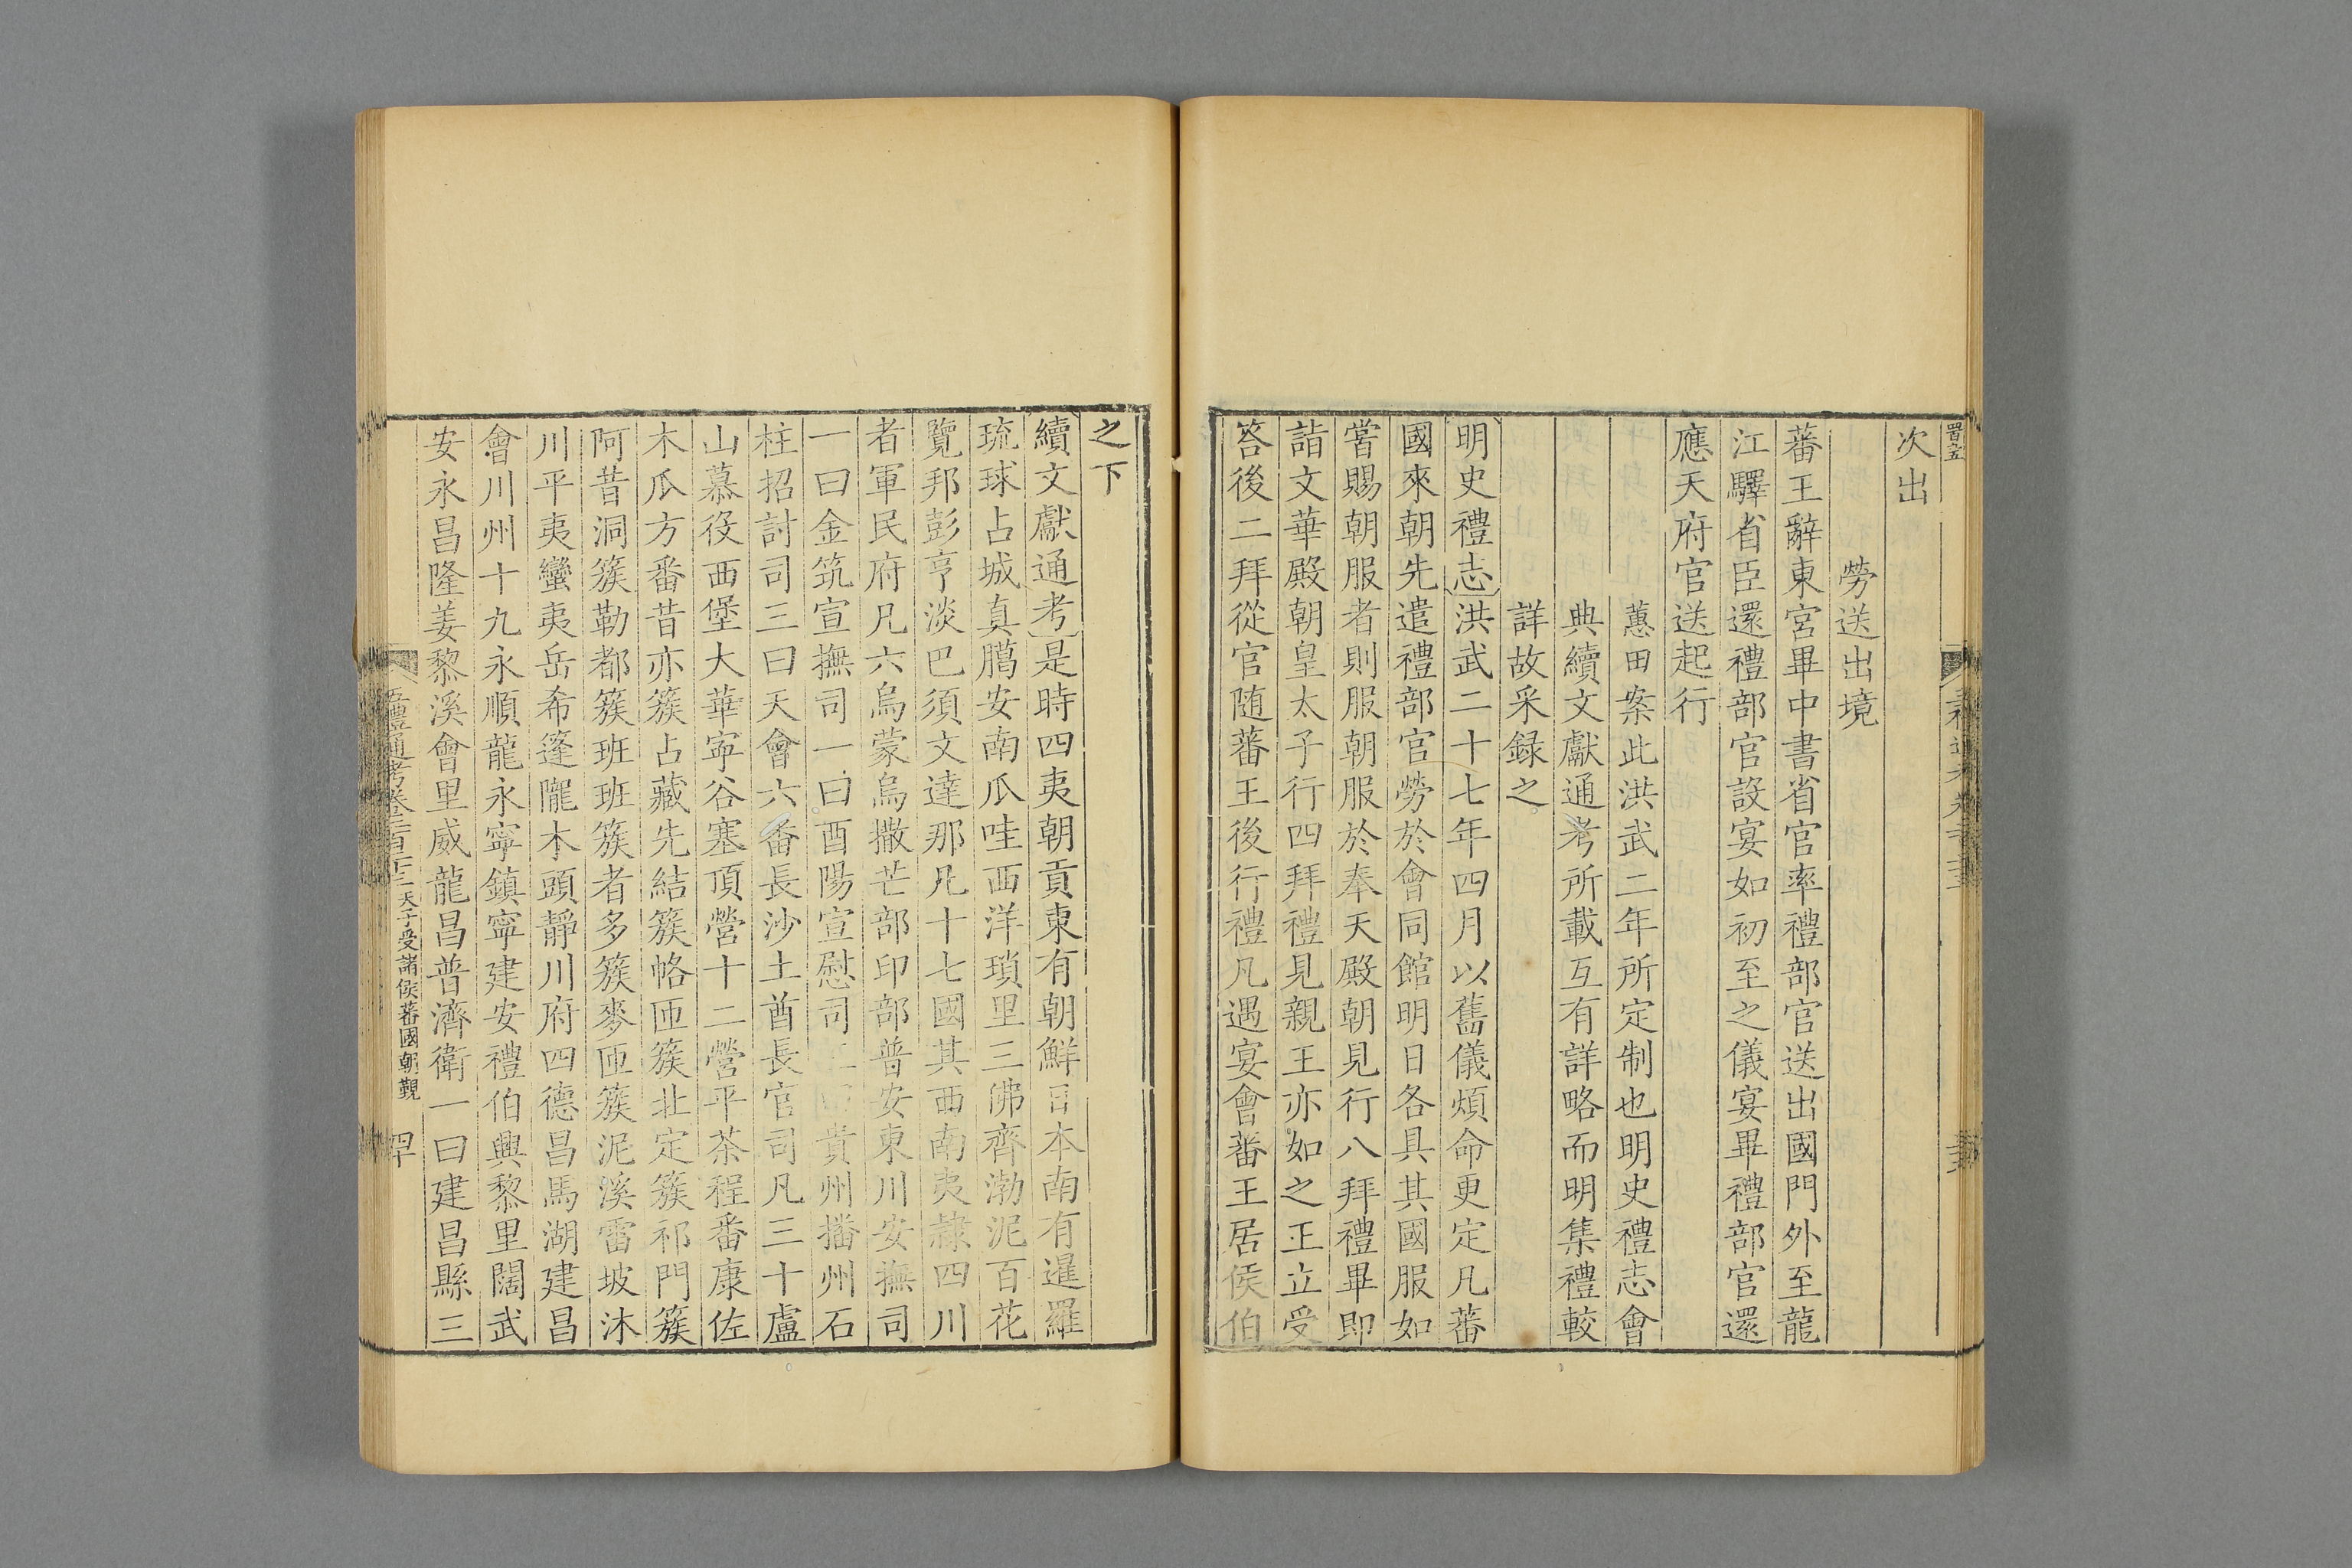 次出
勞送出境
蕃王辭東宮畢中書省官率禮部官送出國門外至龍
江驛省臣還禮部官設宴如初至之儀宴畢禮部官還
應天府官送起行
蕙田案此洪武二年所定制也明史禮志會
典續文獻通考所載互有詳略而明集禮較
詳故采録之
明史禮志洪武二十七年四月以舊儀煩命更定凡蕃
國來朝先遣禮部官勞於會同館明日各具其國服如
嘗賜朝服者則服朝服於奉天殿朝見行八拜禮畢即
詣文華殿朝皇太子行四拜禮見親王亦如之王立受
答後二拜從官随蕃王後行禮凡遇宴會蕃王居侯伯
之下
續文獻通考是時四夷朝貢東有朝鮮日本南有暹羅
琉球占城真臈安南瓜哇西洋瑣里三佛齊渤泥百花
覽邦彭亨淡巴須文達那凡十七國其西南夷隷四川
者軍民府凡六烏蒙烏撒芒部印部普安東川安撫司
一曰金筑宣撫司一曰酉陽宣慰司三曰貴州播州石
柱招討司三曰天會六番長沙土酋長官司凡三十盧
山慕役西堡大華寕谷塞頂營十二營平茶程番康佐
木瓜方番昔亦簇占藏先結簇帒匝簇北定簇祁門簇
阿昔洞簇勒都簇班班簇者多簇麥匝簇泥溪雷坡沐
川平夷蠻夷岳希篷隴木頭靜川府四德昌馬湖建昌
會川州十九永順龍永寧鎮寧建安禮伯興黎里闊武
安永昌隆姜黎溪會里威龍昌普濟衛一曰建昌縣三
五禮通考卷二百二十 天子受諸侯蕃國朝覲 四十